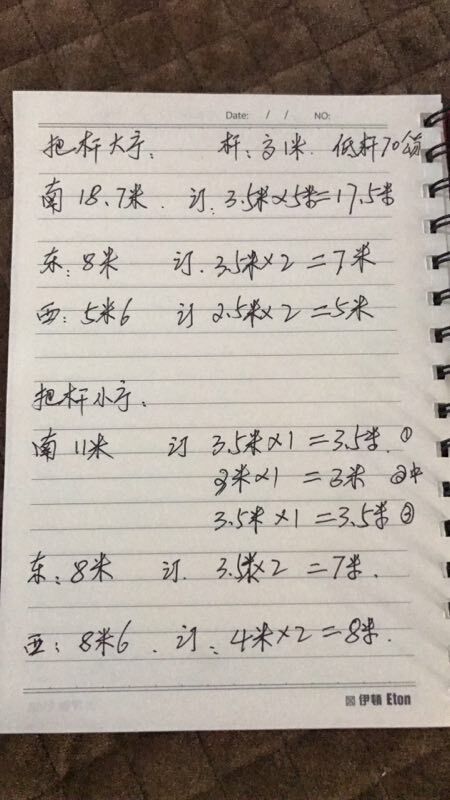 Date: / / NO:
把杆大厅: 杆:高1米. 低杆70公分
南18.7米. 订:3.5米×5米=17.5米
东:8米 订.3.5米×2=7米
西:5米6 订2.5米×2=5米
把杆小厅:
南11米 订3.5米×1=3.5米.①
3米×1=3米 ②中
3.5米×1=3.5米③
东:8米 订.3.5米×2=7米.
西:8米6.订:4米×2=8米.
伊顿 Eton